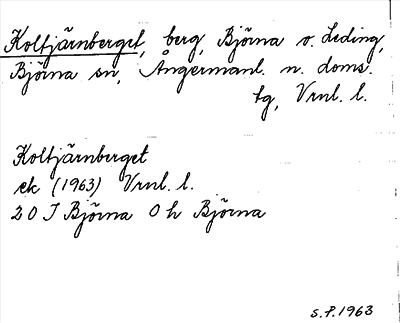 Koltjärnberget, berg, Björna o. Leding,
Björna sn, Ångermanl. n. doms.
tg, Vrnl. l.
Koltjärnberget
ek (1963) Vrnl. l.
20 J Björna 0 h Björna
S.P. 1963